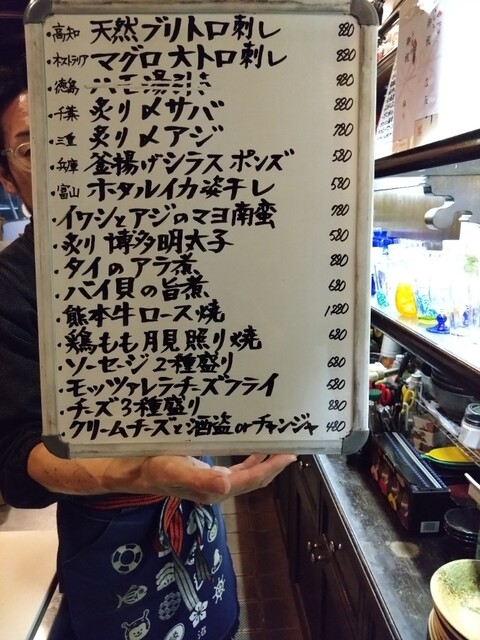 ・高知 天然ブリトロ刺し 880
・オストラリア マグロ大トロ刺し 880
・徳島 ハモ湯引き 980
・千葉 炙り〆サバ 880
・三重 炙り〆アジ 780
・兵庫 釜揚げシラスポンズ 580
・富山 ホタルイカ姿干し 580
・イワシとアジのマヨ南蛮 780
・炙り博多明太子 580
・タイのアラ煮 880
・バイ貝の旨煮 680
・熊本牛ロース焼 1280
・鶏もも月見照り焼 680
・ソーセージ2種盛り 680
・モッツァレラチーズフライ 580
・チーズ3種盛り 880
・クリームチーズと酒盗orチャンジャ 480